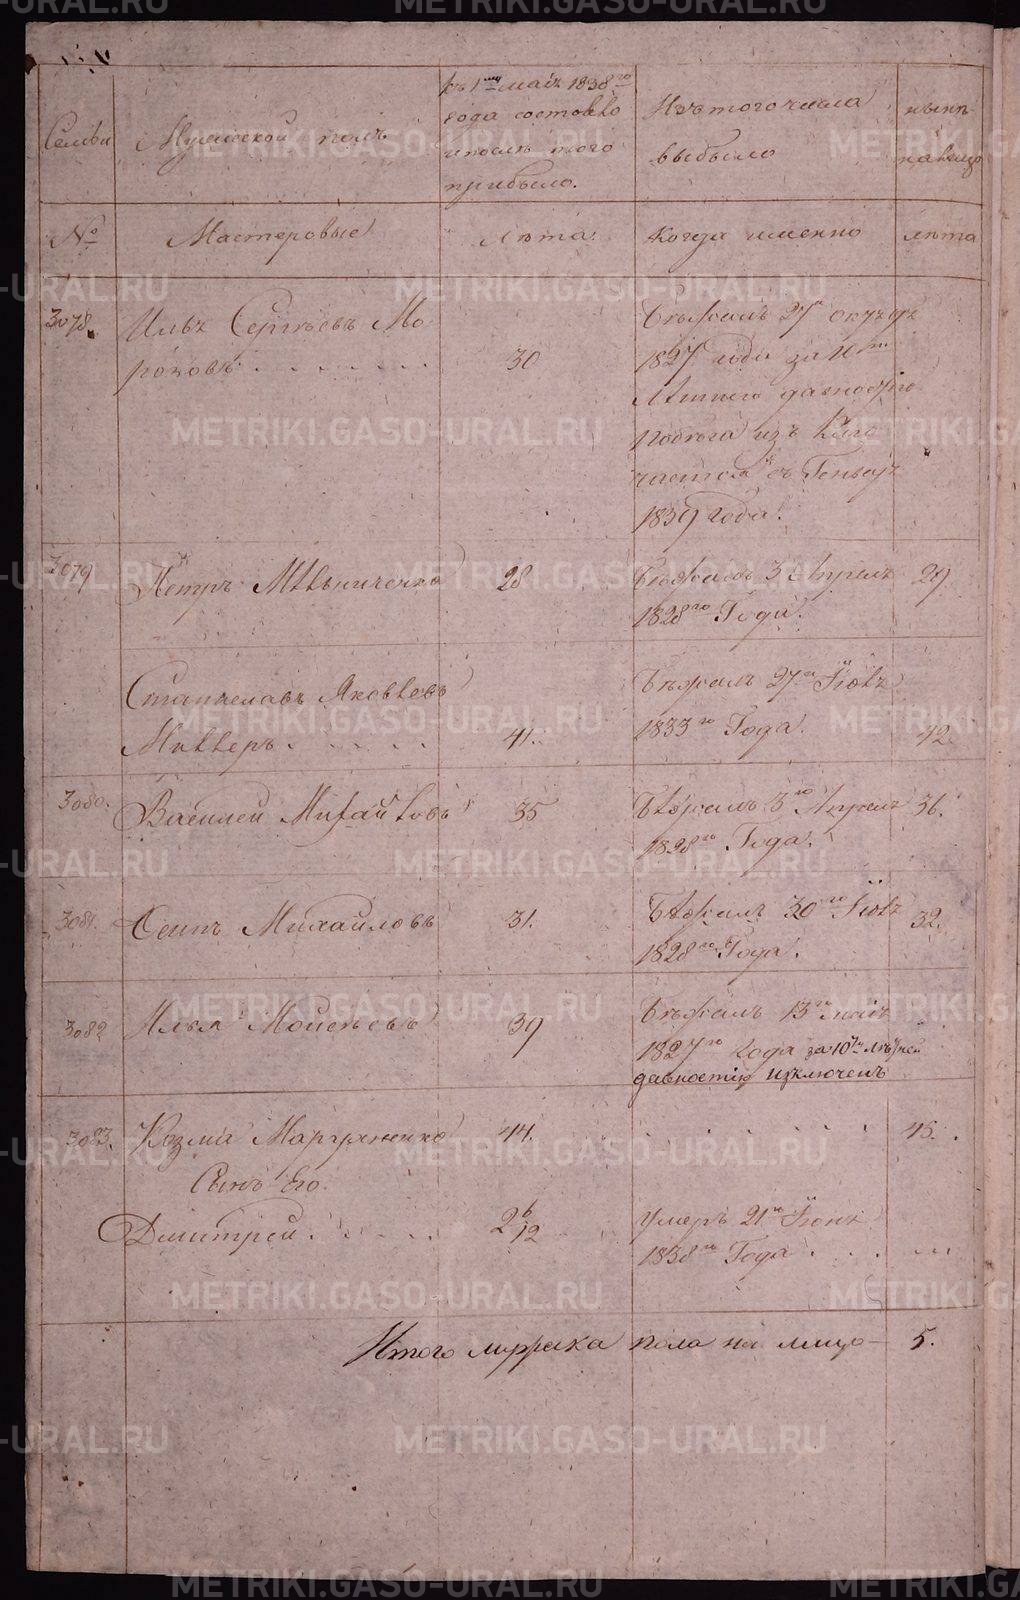 Семьи
Мужескои полъ
къ 1му маiя 1838го
года состояло
и послѣ того
прибыло.
Изъ того числа
выбыло
нынѣ
на лицо
№
Мастеровые
лѣта.
Когда именно
лѣта
3078.
Илья Сергѣевъ Мо-
роковъ . . . . . .
30
Бѣжалъ 27
1827 года за 10ти
лѣтнею давностiю
побѣга изъ
съ Генваря
1839 года.
3079
Петръ Мѣльниченко
28
Бѣжалъ 3 Апреля
1828го Года.
29
Станиславъ Яковлевъ
Миллеръ . . . . .
41.
Бѣжалъ 27го Iюля
1833го Года.
42.
3080.
Василей Михайловъ
35
Бѣжалъ 3го Апреля
1828го Года.
36.
3081.
Осипъ Михайловъ
31.
Бѣжалъ 30го Iюля
1828го Года.
32.
3082
Илья Моисѣевъ
39
Бѣжалъ 13го маiя
1827го Года за 10ти лѣтней
давностiю изключенъ
3083.
Козма Мартыненко
44.
. . . . . . .
45.
Сынъ Его
Дмитрей . . . . .
2 6/12
умеръ 21го Iюня
1838го Года . . .
...
Итого мужска пола на лицо —
5.
METRIKI.GASO-URAL.RU